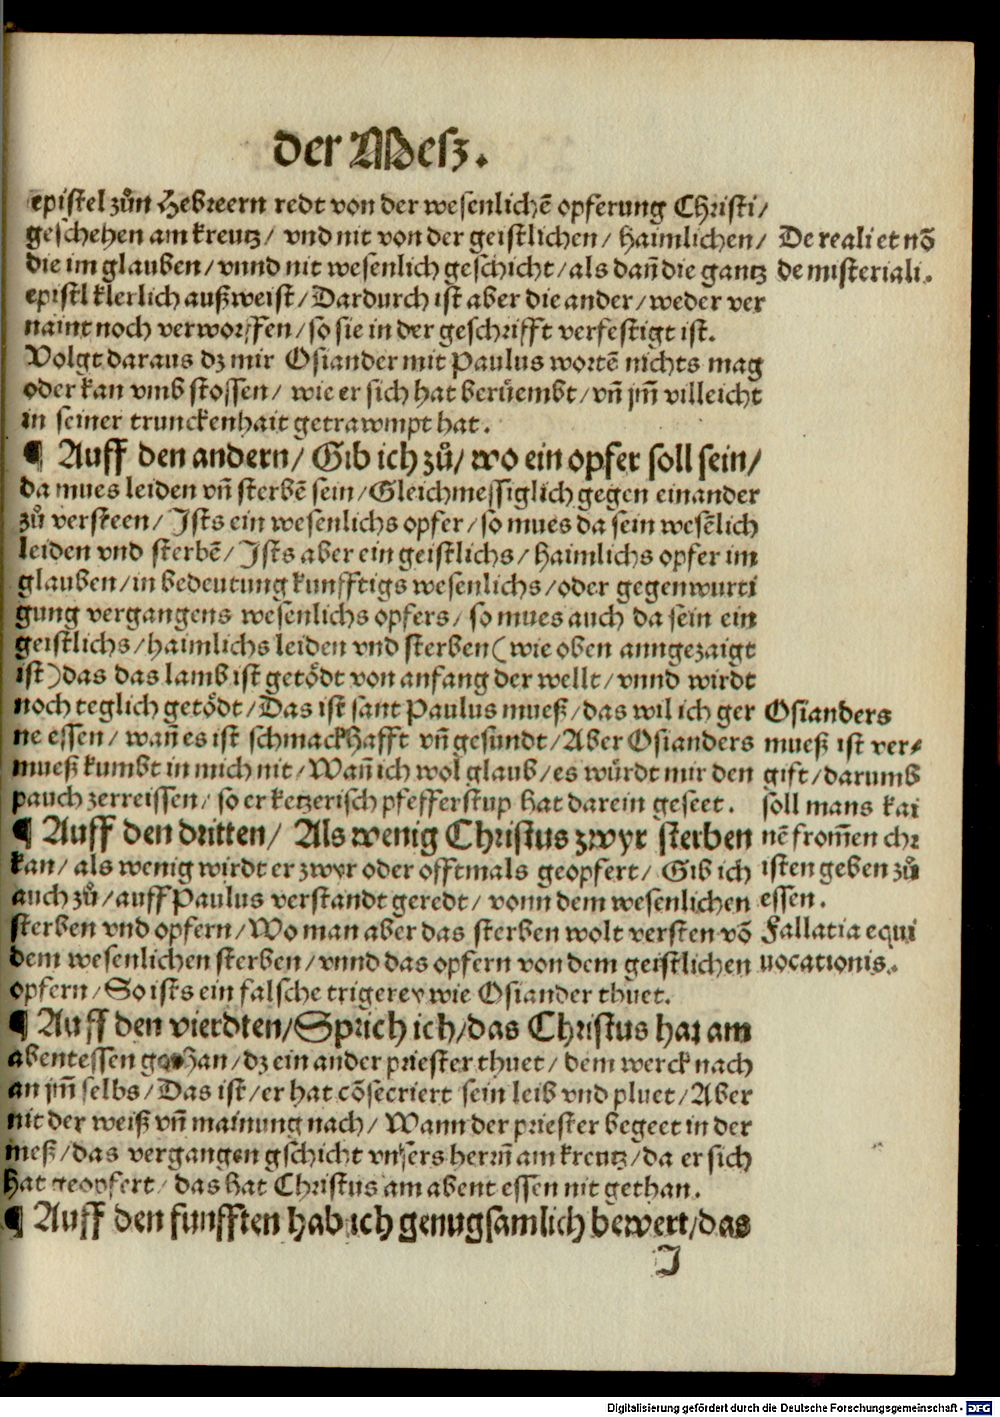 der Mesz.
epistel zůn Hebreern redt von der wesenlichē opferung Christi/
geschehen am kreutz/ vnd nit von der geistlichen/ haimlichen/
die im glauben/vnnd nit wesenlich geschicht/als dañ die gantz
epistl klerlich außweist/Dardurch ist aber die ander/weder ver
naint noch verworffen/so sie in der geschrifft verfestigt ist.
De reali et nō
de misteriali.
Volgt daraus dz mir Osiander mit Paulus wortē nichts mag
oder kan vmb stossen/ wie er sich hat berüembt/ vñ jm̄ villeicht
in seiner trunckenhait getrawmpt hat.
¶ Auff den andern/ Gib ich zů/ wo ein opfer soll sein/
da mues leiden vñ sterbē sein/Gleichmessiglich gegen einander
zů versteen/Ists ein wesenlichs opfer/so mues da sein wesēlich
leiden vnd sterbē/Ists aber ein geistlichs/haimlichs opfer im
glauben/in bedeutung kunfftigs wesenlichs/oder gegenwurti
gung vergangens wesenlichs opfers/so mues auch da sein ein
geistlichs/haimlichs leiden vnd sterben(wie oben anngezaigt
ist)das das lamb ist getödt von anfang der wellt/vnnd wirdt
noch teglich getödt/Das ist sant Paulus mueß/das wil ich ger
ne essen/wañ es ist schmackhafft vñ gesundt/Aber Osianders
mueß kumbt in mich nit/Wañ ich wol glaub/es würdt mir den
pauch zerreissen/so er ketzerisch pfefferstup hat darein geseet.
Osianders
mueß ist ver-
gift/darumb
soll mans kai
nē from̄en chr
isten geben zů
essen.
¶ Auff den dritten/ Als wenig Christus zwyr sterben
kan/als wenig wirdt er zwyr oder offtmals geopfert/ Gib ich
auch zů/auff Paulus verstandt geredt/vonn dem wesenlichen
sterben vnd opfern/Wo man aber das sterben wolt versten vō
dem wesenlichen sterben/vnnd das opfern von dem geistlichen
opfern/So ists ein falsche trigerey wie Osiander thuet.
Fallatia equi
uocationis.
¶ Auff den vierdten/Sprich ich/das Christus hat am
abentessen gethan/dz ein ander priester thuet/dem werck nach
an jm̄ selbs/Das ist/er hat cōsecriert sein leib vnd pluet/Aber
nit der weiß vñ mainung nach/Wann der priester begeet in der
meß/das vergangen gschicht vnsers herrn̄ am kreutz/da er sich
hat geopfert/das hat Christus am abent essen nit gethan.
¶ Auff den funfften hab ich genugsamlich bewert/das
J
Digitalisierung gefördert durch die Deutsche Forschungsgemeinschaft - DFG